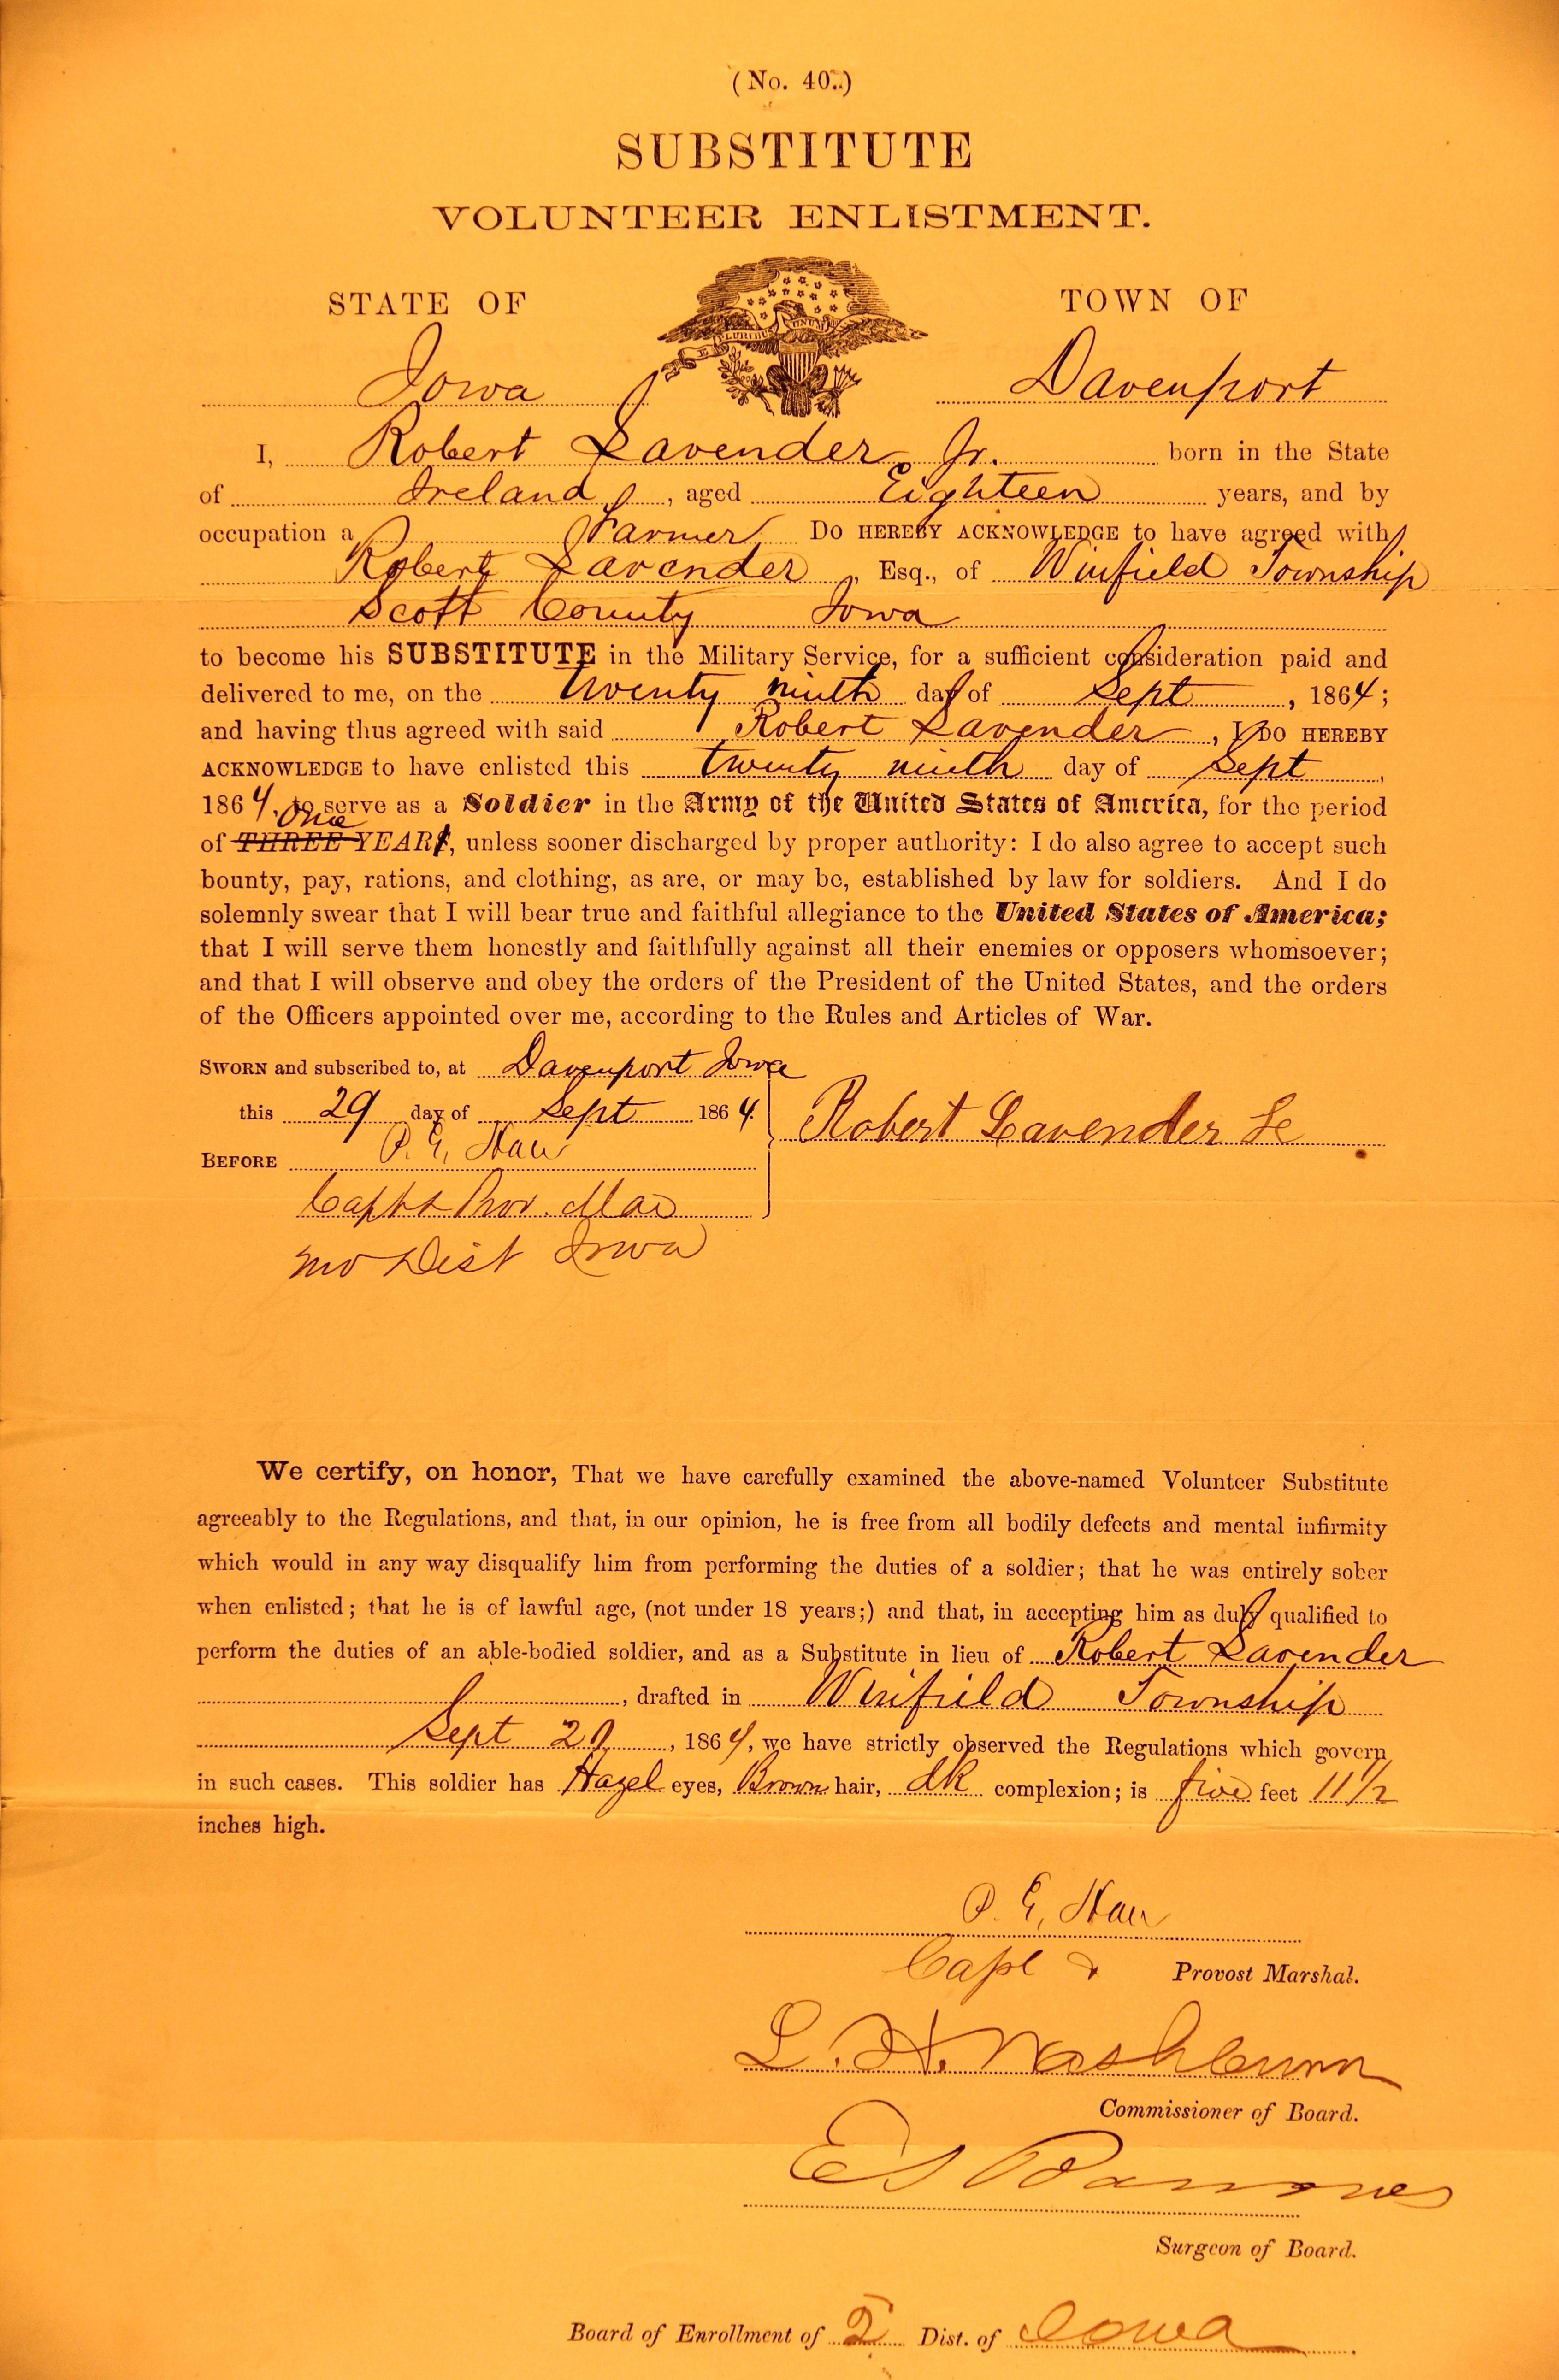 (No. 40.)
SUBSTITUTE
VOLUNTEER ENLISTMENT.
STATE OF
TOWN OF
E PLURIBUS UNUM
Iowa
Davenport
I, Robert Lavender Jr. born in the State
of Ireland, aged Eighteen years, and by
occupation a Farmer DO HEREBY ACKNOWLEDGE to have agreed with
Robert Lavender, Esq., of Winfield Township
Scott County Iowa
to become his SUBSTITUTE in the Military Service, for a sufficient consideration paid and
delivered to me, on the twenty ninth day of Sept, 1864;
and having thus agreed with said Robert Lavender, I DO HEREBY
ACKNOWLEDGE to have enlisted this twenty ninth day of Sept,
1864, to serve as a Soldier in the Army of the United States of America, for the period
of THREE One YEARS, unless sooner discharged by proper authority: I do also agree to accept such
bounty, pay, rations, and clothing, as are, or may be, established by law for soldiers. And I do
solemnly swear that I will bear true and faithful allegiance to the United States of America;
that I will serve them honestly and faithfully against all their enemies or opposers whomsoever;
and that I will observe and obey the orders of the President of the United States, and the orders
of the Officers appointed over me, according to the Rules and Articles of War.
SWORN and subscribed to, at Davenport Iowa
this 29 day of Sept 1864.
Robert Lavender
BEFORE P. G.
Capt & Prov. Mar
Dist Iowa
We certify, on honor, That we have carefully examined the above-named Volunteer Substitute
agreeably to the Regulations, and that, in our opinion, he is free from all bodily defects and mental infirmity
which would in any way disqualify him from performing the duties of a soldier; that he was entirely sober
when enlisted; that he is of lawful age, (not under 18 years;) and that, in accepting him as duly qualified to
perform the duties of an able-bodied soldier, and as a Substitute in lieu of Robert Lavender
, drafted in Winfield Township
Sept 20, 1864, we have strictly observed the Regulations which govern
in such cases. This soldier has Hazel eyes, Brown hair, dk complexion; is five feet 11 1/2
inches high.
P. G.
Capt & Provost Marshal.
L. H. Washburn
Commissioner of Board.
Surgeon of Board.
Board of Enrollment of 2 Dist. of Iowa